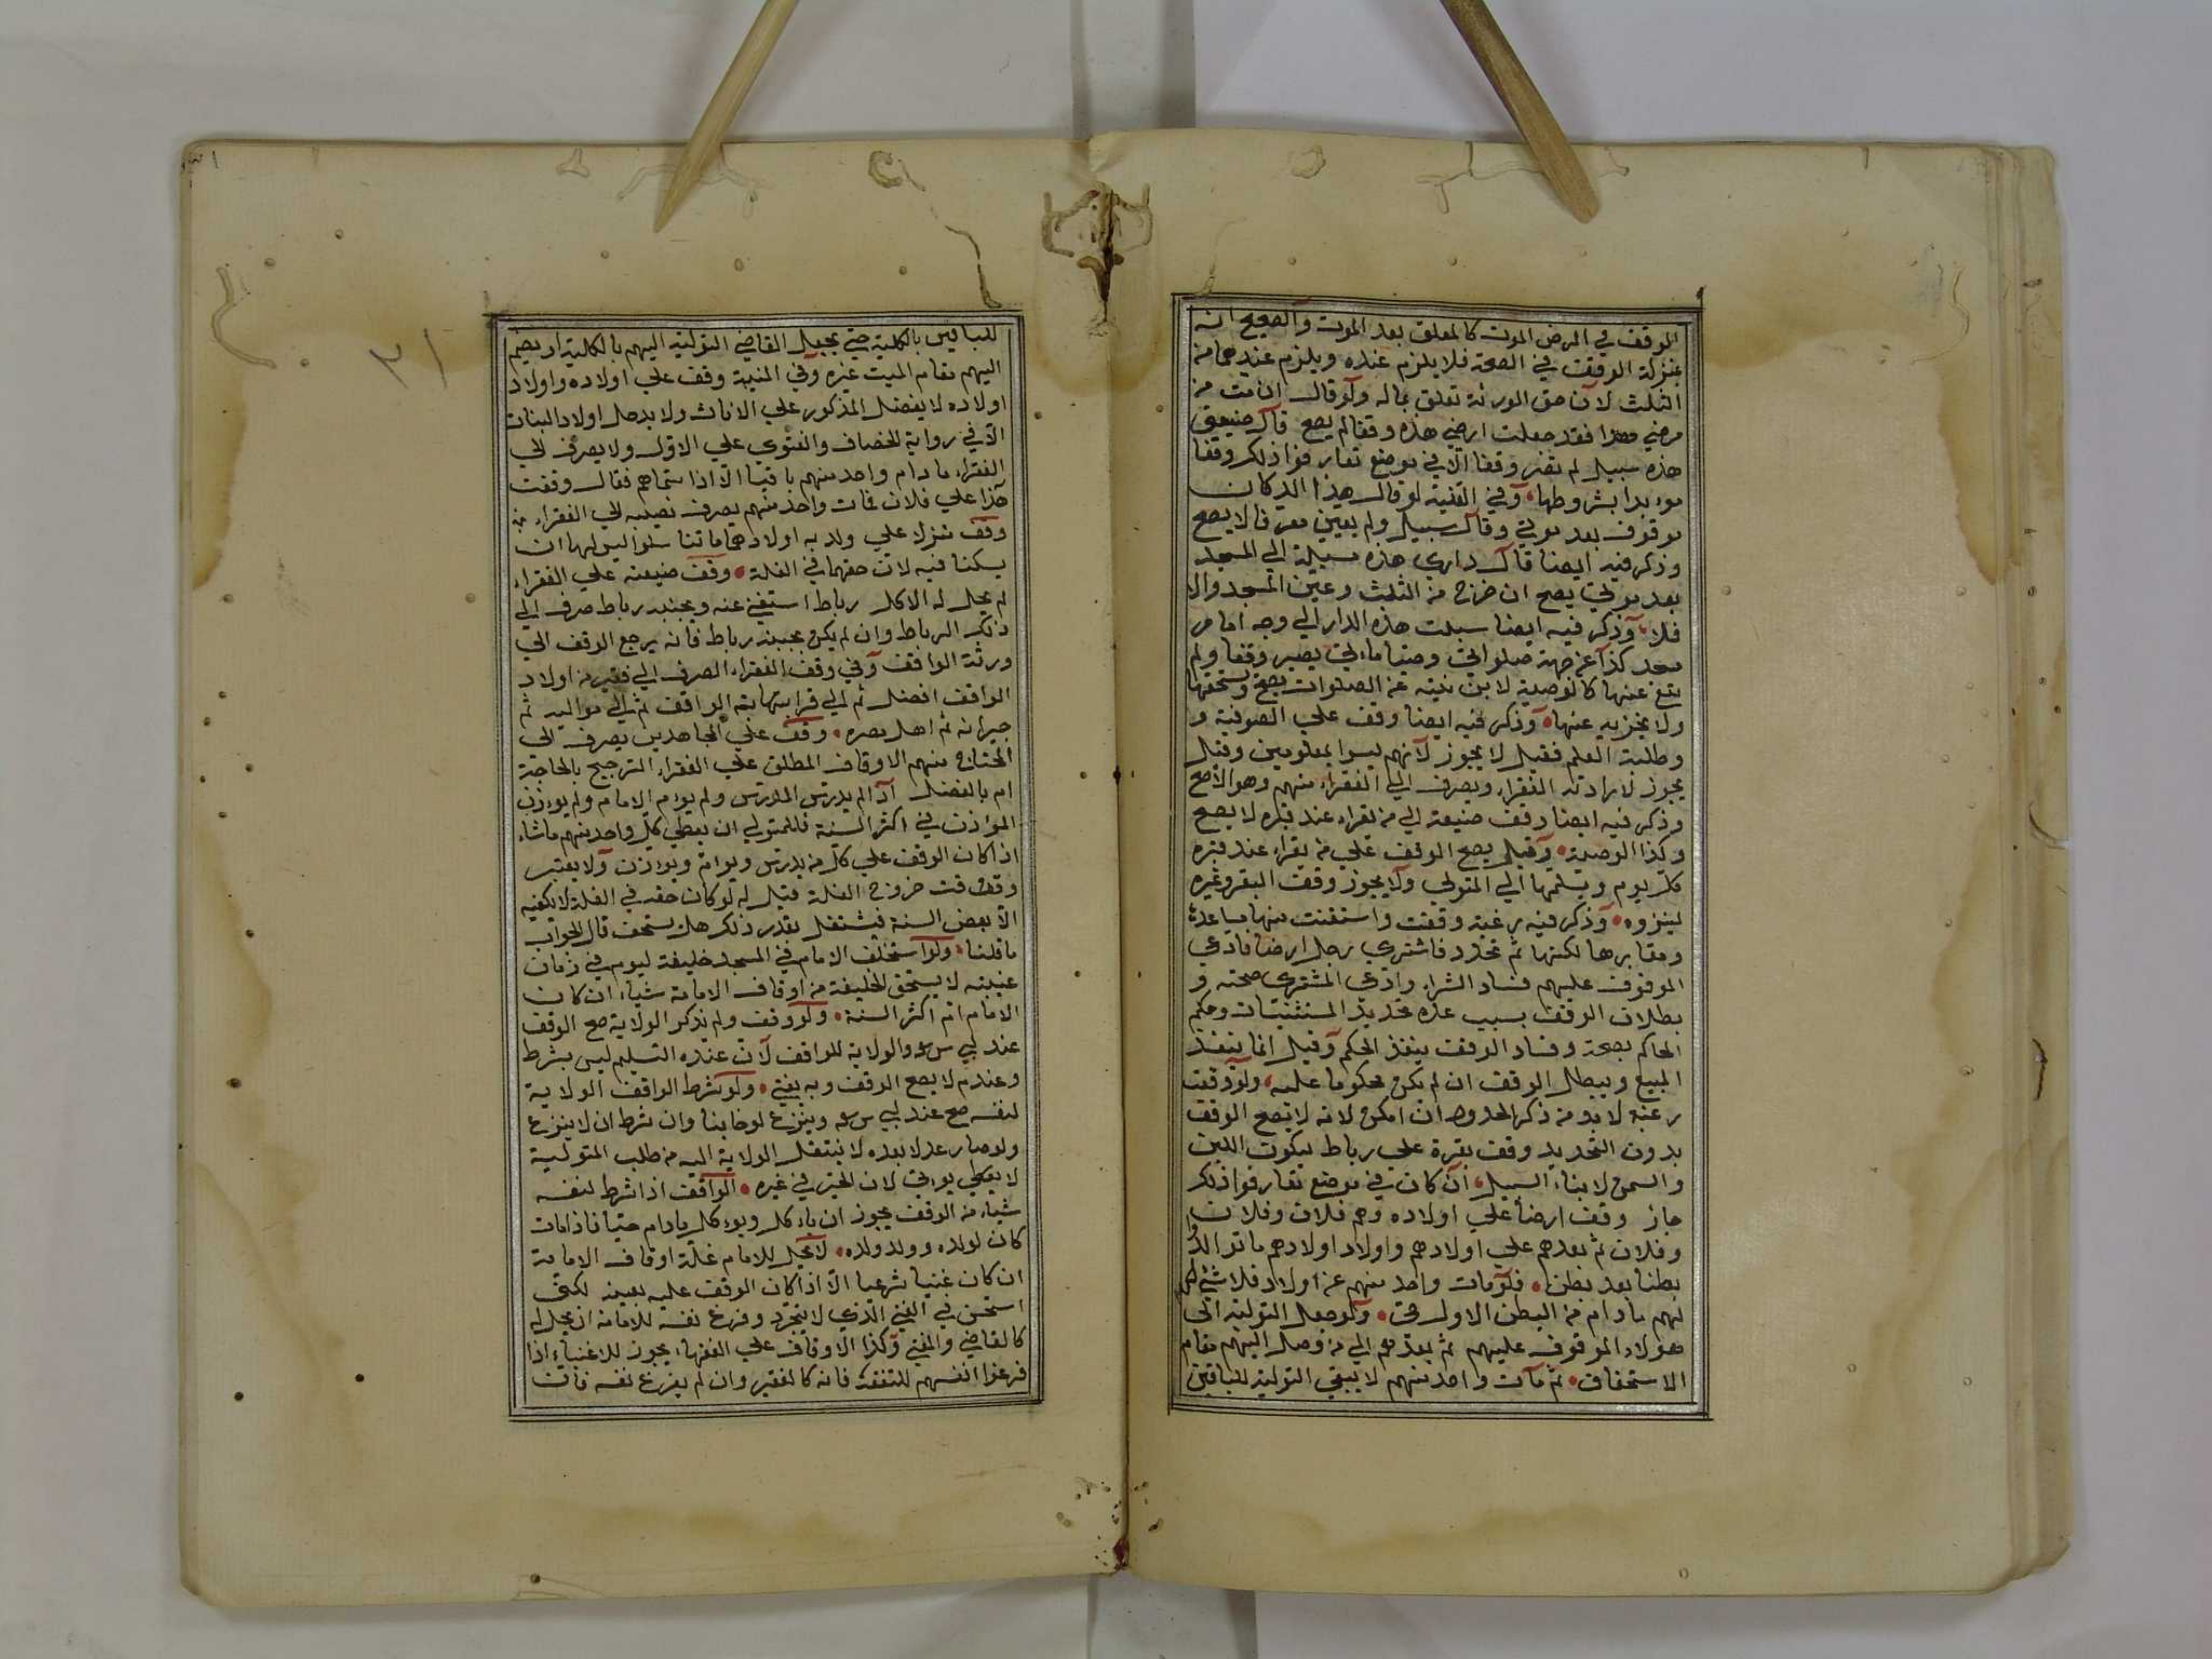 الوقف في المرض الموت كالمعلق بعد الموت والصحيح انه
بمنزلة الوقف في الصحة فلا يلزم عنده ويلزم عندهما من
الثلث لان حق الورثة تعلق بماله ولو قال ان مت من
مرضي هذا فقد جعلت ارضي هذه وقفا لم يصح قال ضيعتي
هذه سبيل لم تصر وقفا الا في موضع تعارفوا ذلك وقفا
موءبدا بشروطها وفي القنية لو قال هذا الدكان
موقوف بعد موتي وقال سبيل ولم يعين مصرفا لا يصح
وذكر فيه ايضا قال داري هذه سبيلة الي المسجد
بعد موتي يصح ان خرج من الثلث وعين المسجد والا
فلا وذكر فيه ايضا سبلت هذه الدار الي وجه امام
مسجد كذا عن جهة صلواتي وصياماتي يصير وقفا ولم
تقع عنها كالوصية لابن بنته عن الصلوات يصح ويستحقها
ولا يجزيه عنها وذكر فيه ايضا وقف علي الصوفية و
وطلبة العلم فقيل لا يجوز لانهم ليسوا بمعلومين وقيل
يجوز لارادته الفقراء ويصرف الي الفقراء منهم وهو الاصح
وذكر فيه ايضا وقف ضيعته الي من تقراء عند قبره لا يصح
وكذا الوصية وقيل يصح الوقف علي من يقراء عند قبره
كل يوم ويسلمها الي المتولي ولا يجوز وقف البقر وغيره
لينزوه وذكر فيه رغبة وقفت واستثنت منها مساجدها
ومقابرها لكنها لم تحدد فاشتري رجل ارضا فادعي
الموقوف عليهم فساد الشراء وادعي المشتري صحته و
بطلان الوقف بسبب عدم تحديد المستثنيات وحكم
الحاكم بصحة وفساد الوقف ينفذ الحكم وقيل انما ينفذ
البيع ويبطل الوقف ان لم يكن محكوما عليه ولو وقفت
رغبة لا بد من ذكر الحدود ان امكن لانه لا تصح الوقف
بدون التحديد وقف بقرة علي رباط ليكون اللبن
والسمن لابناء السبيل ان كان في موضع تعارفوا ذلك
جاز وقف ارضا علي اولاده وهم فلان وفلان
وفلان ثم بعدهم علي اولادهم واولاد اولادهم ما توالدوا
بطنا بعد بطن فلو مات واحد منهم عن اولاد فلا شيء
لهم ما دام من البطن الاول حي ولو جعل التولية الي
هولاء الموقوف عليهم ثم بعدهم الي من وصل اليهم مقام
الاستحقاق ثم مات واحد منهم لا يبقي التولية للباقين
للباقين بالكلية حتي يجعل القاضي التولية اليهم بالكلية او يضم
اليهم مقام الميت غيره وفي المنية وقف علي اولاده واولاد
اولاده لا يفضل المذكور علي الاناث ولا يدخل اولاد البنات
الا في رواية الخصاف والفتوي علي الاول ولا يصرف الي
الفقراء ما دام واحد منهم باقيا الا اذا سماهم فقال وقفت
هذا علي فلان فمات واحد منهم يصرف نصيبه الي الفقراء
وقف منزلا علي ولديه اولادهما ما تناسلوا ليس لهما ان
يسكنا فيه لان حقهما في الغلة وقف ضيعته علي الفقراء
لم يحل له الاكل رباط استغني عنه وبجنبه رباط صرف الي
ذلك الرباط وان لم يكن بجنبه رباط فانه يرجع الوقف الي
ورثة الواقف وفي وقف الفقراء الصرف الي فقير من اولاد
الواقف افضل ثم الي قرابته الواقف ثم الي مواليه ثم
جيرانه ثم اهل مصره وقف علي المجاهدين يصرف الي
المحتاج منهم الاوقاف المطلق علي الفقراء الترجيح بالحاجة
ام بالفضل اذا لم يدرس المدرس ولم يوءم الامام ولم يوءذن
الموءذن في اكثر السنة فللمتولي ان يعطي كل واحد منهم ما شاء
اذا كان الوقف علي كل من يدرس ويوءم ويوءذن ولا يعتبر
وقت خروج الغلة قيل له لو كان حقه في الغلة لا تكفيه
الا بعض السنة فيشتغل بقدر ذلك هل يستحق قال الجواب
ما قلنا ولو استخلف الامام في المسجد خليفة ليوم في زمان
غيبته لا يستحق الخليفة من اوقاف الامامة شياء ان كان
الامام ام اكثر السنة ولو وقف ولم يذكر الولاية صح الوقف
عند ابي س والولاية للواقف لان عنده التسليم ليس بشرط
وعند م لا يصح الوقف وبه يفتي ولو شرط الواقف الولاية
لنفسه صح عند ابي س وينزع لو خاينا وان شرط ان لا ينزع
ولو صار عدلا بعده لا ينتقل الولاية اليه من طلب التولية
لا يعطي لان الخير في غيره الواقف اذا شرط لنفسه
شياء من الوقف يجوز ان ياءكل ويوءكل ما دام حيا فاذا مات
كان لولده وولد ولده لا يحل للامام غلة اوقاف الامامة
ان كان غنيا شرعيا الا اذا كان الوقف عليه بعينه لكن
استحسن في الغني الذي لا يتجرد وفرغ نفسه للامامة ان يحل له
كالقاضي والمفتي وكذا الاوقاف علي الفقهاء يجوز للاغنياء اذا
فرغوا انفسهم للتفقه فانه كالفقير وان لم يفرغ نفسه فان
٣١
٣١